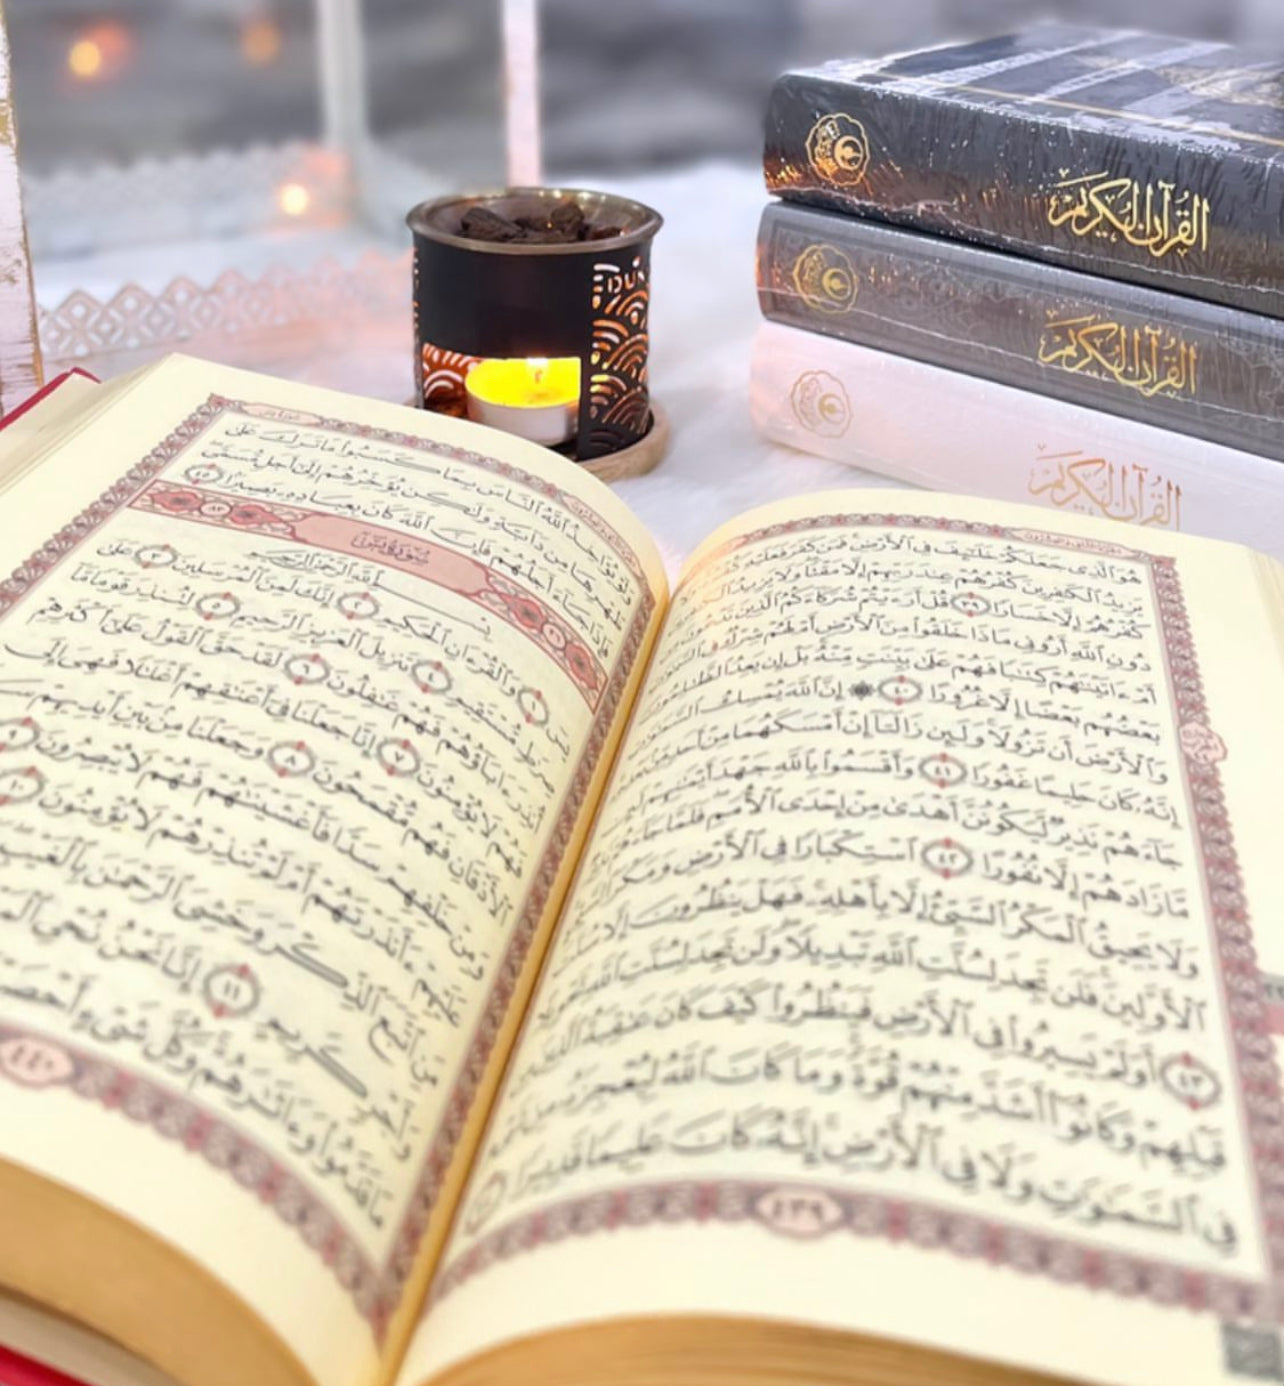 القرآن الكريم
القرآن الكريم
القرآن الكريم
هُوَ ٱلَّذِى جَعَلَكُمْ خَلَٰٓئِفَ فِى ٱلْأَرْضِ فَمَن كَفَرَ فَعَلَيْهِ
يَزِيدُ ٱلْكَٰفِرِينَ كُفْرُهُمْ عِندَ رَبِّهِمْ إِلَّا مَقْتًا وَلَا يَزِيدُ
كُفْرُهُمْ إِلَّا خَسَارًا ٣٩ قُلْ أَرَءَيْتُمْ شُرَكَآءَكُمُ ٱلَّذِينَ تَدْعُونَ
دُونِ ٱللَّهِ أَرُونِى مَاذَا خَلَقُوا۟ مِنَ ٱلْأَرْضِ أَمْ لَهُمْ شِرْكٌ فِى
أَمْ ءَاتَيْنَٰهُمْ كِتَٰبًا فَهُمْ عَلَىٰ بَيِّنَتٍ مِّنْهُ بَلْ إِن يَعِدُ ٱلظَّٰلِمُونَ
بَعْضُهُم بَعْضًا إِلَّا غُرُورًا ٤٠ ۞ إِنَّ ٱللَّهَ يُمْسِكُ
وَٱلْأَرْضَ أَن تَزُولَا وَلَئِن زَالَتَآ إِنْ أَمْسَكَهُمَا مِنْ أَحَدٍ
إِنَّهُۥ كَانَ حَلِيمًا غَفُورًا ٤١ وَأَقْسَمُوا۟ بِٱللَّهِ جَهْدَ أَيْمَٰنِهِمْ
جَآءَهُمْ نَذِيرٌ لَّيَكُونُنَّ أَهْدَىٰ مِنْ إِحْدَى ٱلْأُمَمِ فَلَمَّا جَآءَهُمْ
مَّا زَادَهُمْ إِلَّا نُفُورًا ٤٢ ٱسْتِكْبَارًا فِى ٱلْأَرْضِ وَمَكْرَ
وَلَا يَحِيقُ ٱلْمَكْرُ ٱلسَّيِّئُ إِلَّا بِأَهْلِهِۦ فَهَلْ يَنظُرُونَ إِلَّا سُنَّتَ
ٱلْأَوَّلِينَ فَلَن تَجِدَ لِسُنَّتِ ٱللَّهِ تَبْدِيلًا وَلَن تَجِدَ لِسُنَّتِ ٱللَّهِ
٤٣ أَوَلَمْ يَسِيرُوا۟ فِى ٱلْأَرْضِ فَيَنظُرُوا۟ كَيْفَ كَانَ عَٰقِبَةُ ٱلَّذِينَ
قَبْلِهِمْ وَكَانُوٓا۟ أَشَدَّ مِنْهُمْ قُوَّةً وَمَا كَانَ ٱللَّهُ لِيُعْجِزَهُۥ مِن
فِى ٱلسَّمَٰوَٰتِ وَلَا فِى ٱلْأَرْضِ إِنَّهُۥ كَانَ عَلِيمًا قَدِيرًا
٤٣٩
وَلَوْ يُؤَاخِذُ ٱللَّهُ ٱلنَّاسَ بِمَا كَسَبُوا۟ مَا تَرَكَ عَلَىٰ
ظَهْرِهَا مِن دَآبَّةٍ وَلَٰكِن يُؤَخِّرُهُمْ إِلَىٰٓ أَجَلٍ مُّسَمًّى
فَإِذَا جَآءَ أَجَلُهُمْ فَإِنَّ ٱللَّهَ كَانَ بِعِبَادِهِۦ بَصِيرًۢا ٤٥
سُورَةُ يسٓ
بِسْمِ ٱللَّهِ ٱلرَّحْمَٰنِ ٱلرَّحِيمِ
يسٓ ١ وَٱلْقُرْءَانِ ٱلْحَكِيمِ ٢ إِنَّكَ لَمِنَ ٱلْمُرْسَلِينَ ٣ عَلَىٰ
صِرَٰطٍ مُّسْتَقِيمٍ ٤ تَنزِيلَ ٱلْعَزِيزِ ٱلرَّحِيمِ ٥ لِتُنذِرَ قَوْمًا مَّآ
أُنذِرَ ءَابَآؤُهُمْ فَهُمْ غَٰفِلُونَ ٦ لَقَدْ حَقَّ ٱلْقَوْلُ عَلَىٰٓ أَكْثَرِهِمْ
فَهُمْ لَا يُؤْمِنُونَ ٧ إِنَّا جَعَلْنَا فِىٓ أَعْنَٰقِهِمْ أَغْلَٰلًا فَهِىَ إِلَى
ٱلْأَذْقَانِ فَهُم مُّقْمَحُونَ ٨ وَجَعَلْنَا مِنۢ بَيْنِ أَيْدِيهِمْ
وَمِنْ خَلْفِهِمْ سَدًّا فَأَغْشَيْنَٰهُمْ فَهُمْ لَا يُبْصِرُونَ
عَلَيْهِمْ ءَأَنذَرْتَهُمْ أَمْ لَمْ تُنذِرْهُمْ لَا يُؤْمِنُونَ ١٠
ٱتَّبَعَ ٱلذِّكْرَ وَخَشِىَ ٱلرَّحْمَٰنَ بِٱلْغَيْبِ
كَرِيمٍ ١١ إِنَّا نَحْنُ نُحْىِ
مَا قَدَّمُوا۟ وَءَاثَٰرَهُمْ وَكُلَّ شَىْءٍ
٤٤٠